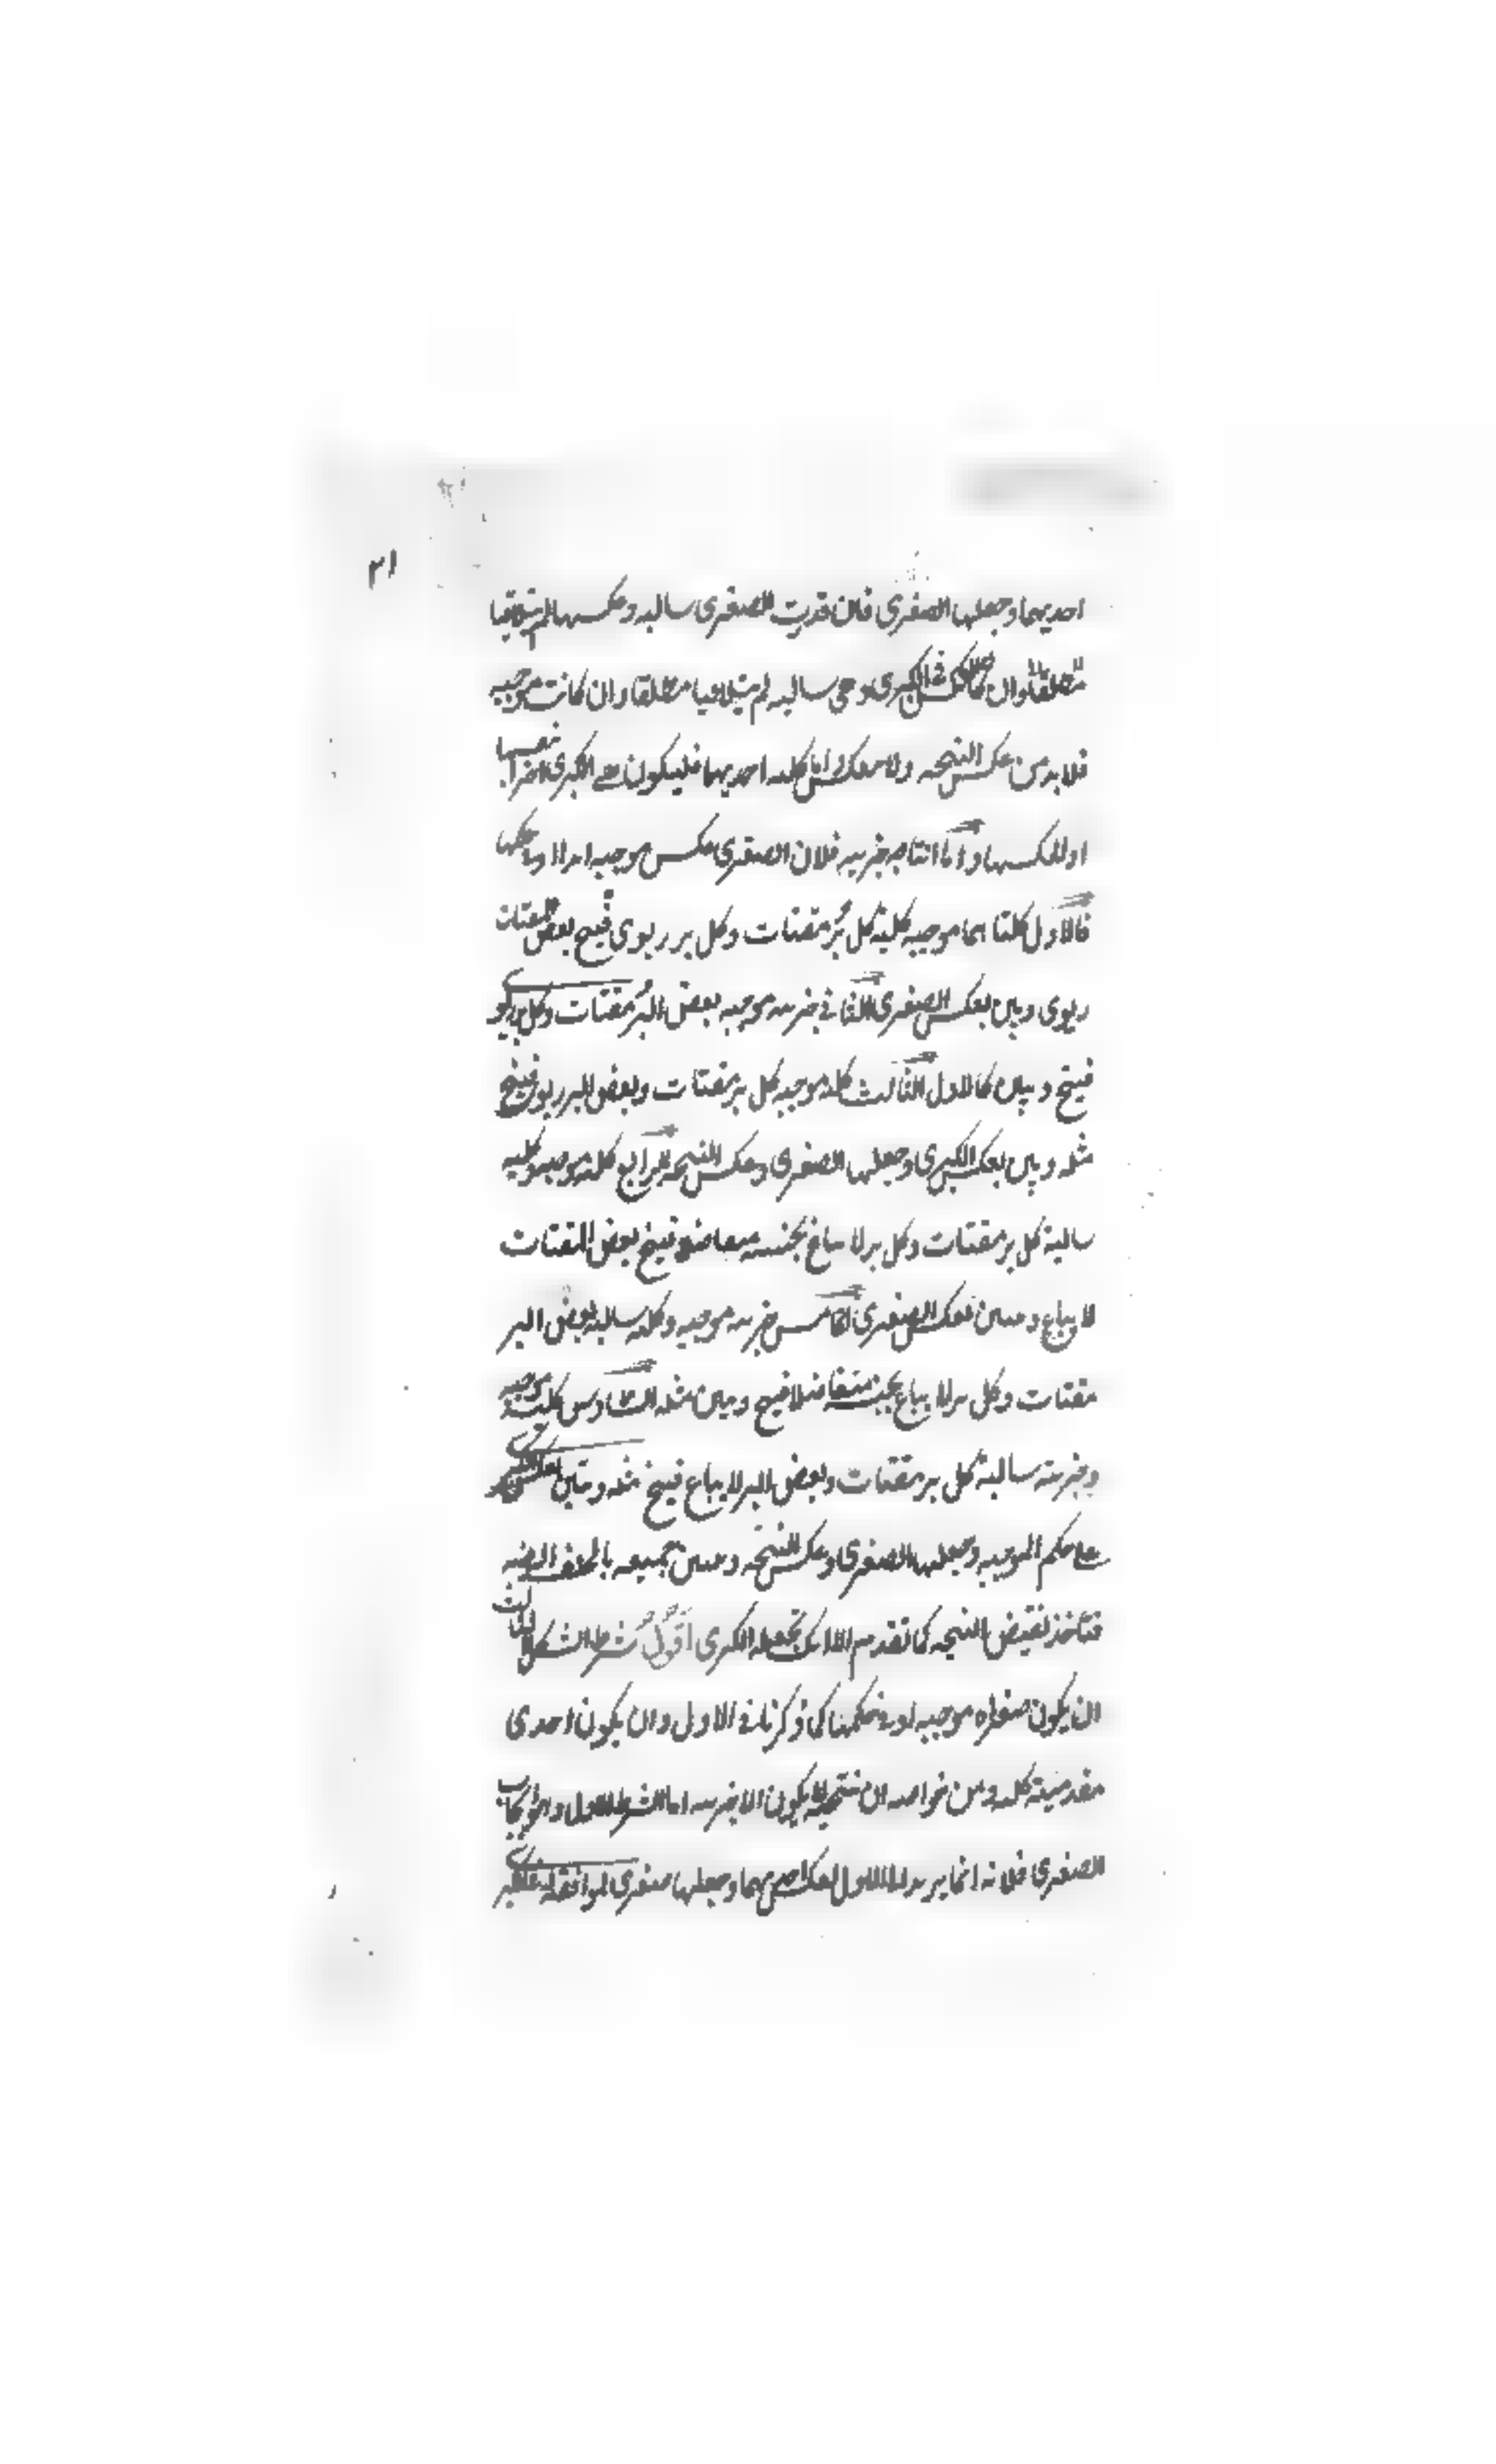 ٣١
احديهما وجعلها الصغرى فان قدرت الصغرى سالبه وعكسها لم يتلاقيا
مطلقا وان كان العكس في الكبرى وهى سالبه لم يتلاقيا مطلقا وان كانت موجبه
فلا بد من عكس النتيجه ولا ينعكس اما كليه احديهما فليكون هي الكبرى اخرا بنفسها
او بعكسها واما انتاجه جزييه فلان الصغرى عكس موجبه ابدا او في حكمها
فالاول كلتاهما موجبه كلية كل بُر مقتات وكل بر ربوى فينتج بعض المقتات
ربوى ويبين بعكس الصغرى الثانى جزييه موجبه بعض البُر مقتات وكل بر ربوى
فينتج ويبين كالاول الثالث كليه موجبه كل بر مقتات وبعض البر ربوى فينتج
مثله ويبين بعكس الكبرى وجعلها الصغرى وعكس النتيجه الرابع كليه موجبه وكليه
سالبة كل بر مقتات وكل بر لا يباع بجنسه متفاضلا فينتج بعض المقتات
لا يباع ويبين بعكس الصغرى الخامس جزييه موجبه وكليه سالبه بعض البر
مقتات وكل بر لا يباع بجنسه متفاضلا فينتج ويبين مثله السادس كليه موجبه
وجزييه سالبة كل بر مقتات وبعض البر لا يباع فينتج مثله ويتبين بعكس الكبرى
على حكم الموجبه وجعلها الصغرى وعكس النتيجه ويبين جميعه بالخلف ايضا
فتاخذ نقيض النتيجه كما تقدم الا انك تجعله الكبرى اَقُولُ شرط الشكل الثالث
ان يكون صغراه موجبه او في حكمها كما ذكرنا في الاول وان يكون احدى
مقدمتيه كليه ومن خواصه ان نتيجته لا يكون الا جزييه اما الشرط الاول وهو ايجاب
الصغرى فلانه انما يرتد الى الاول بعكس احديهما وجعلها صغرى لموافقته في الكبرى